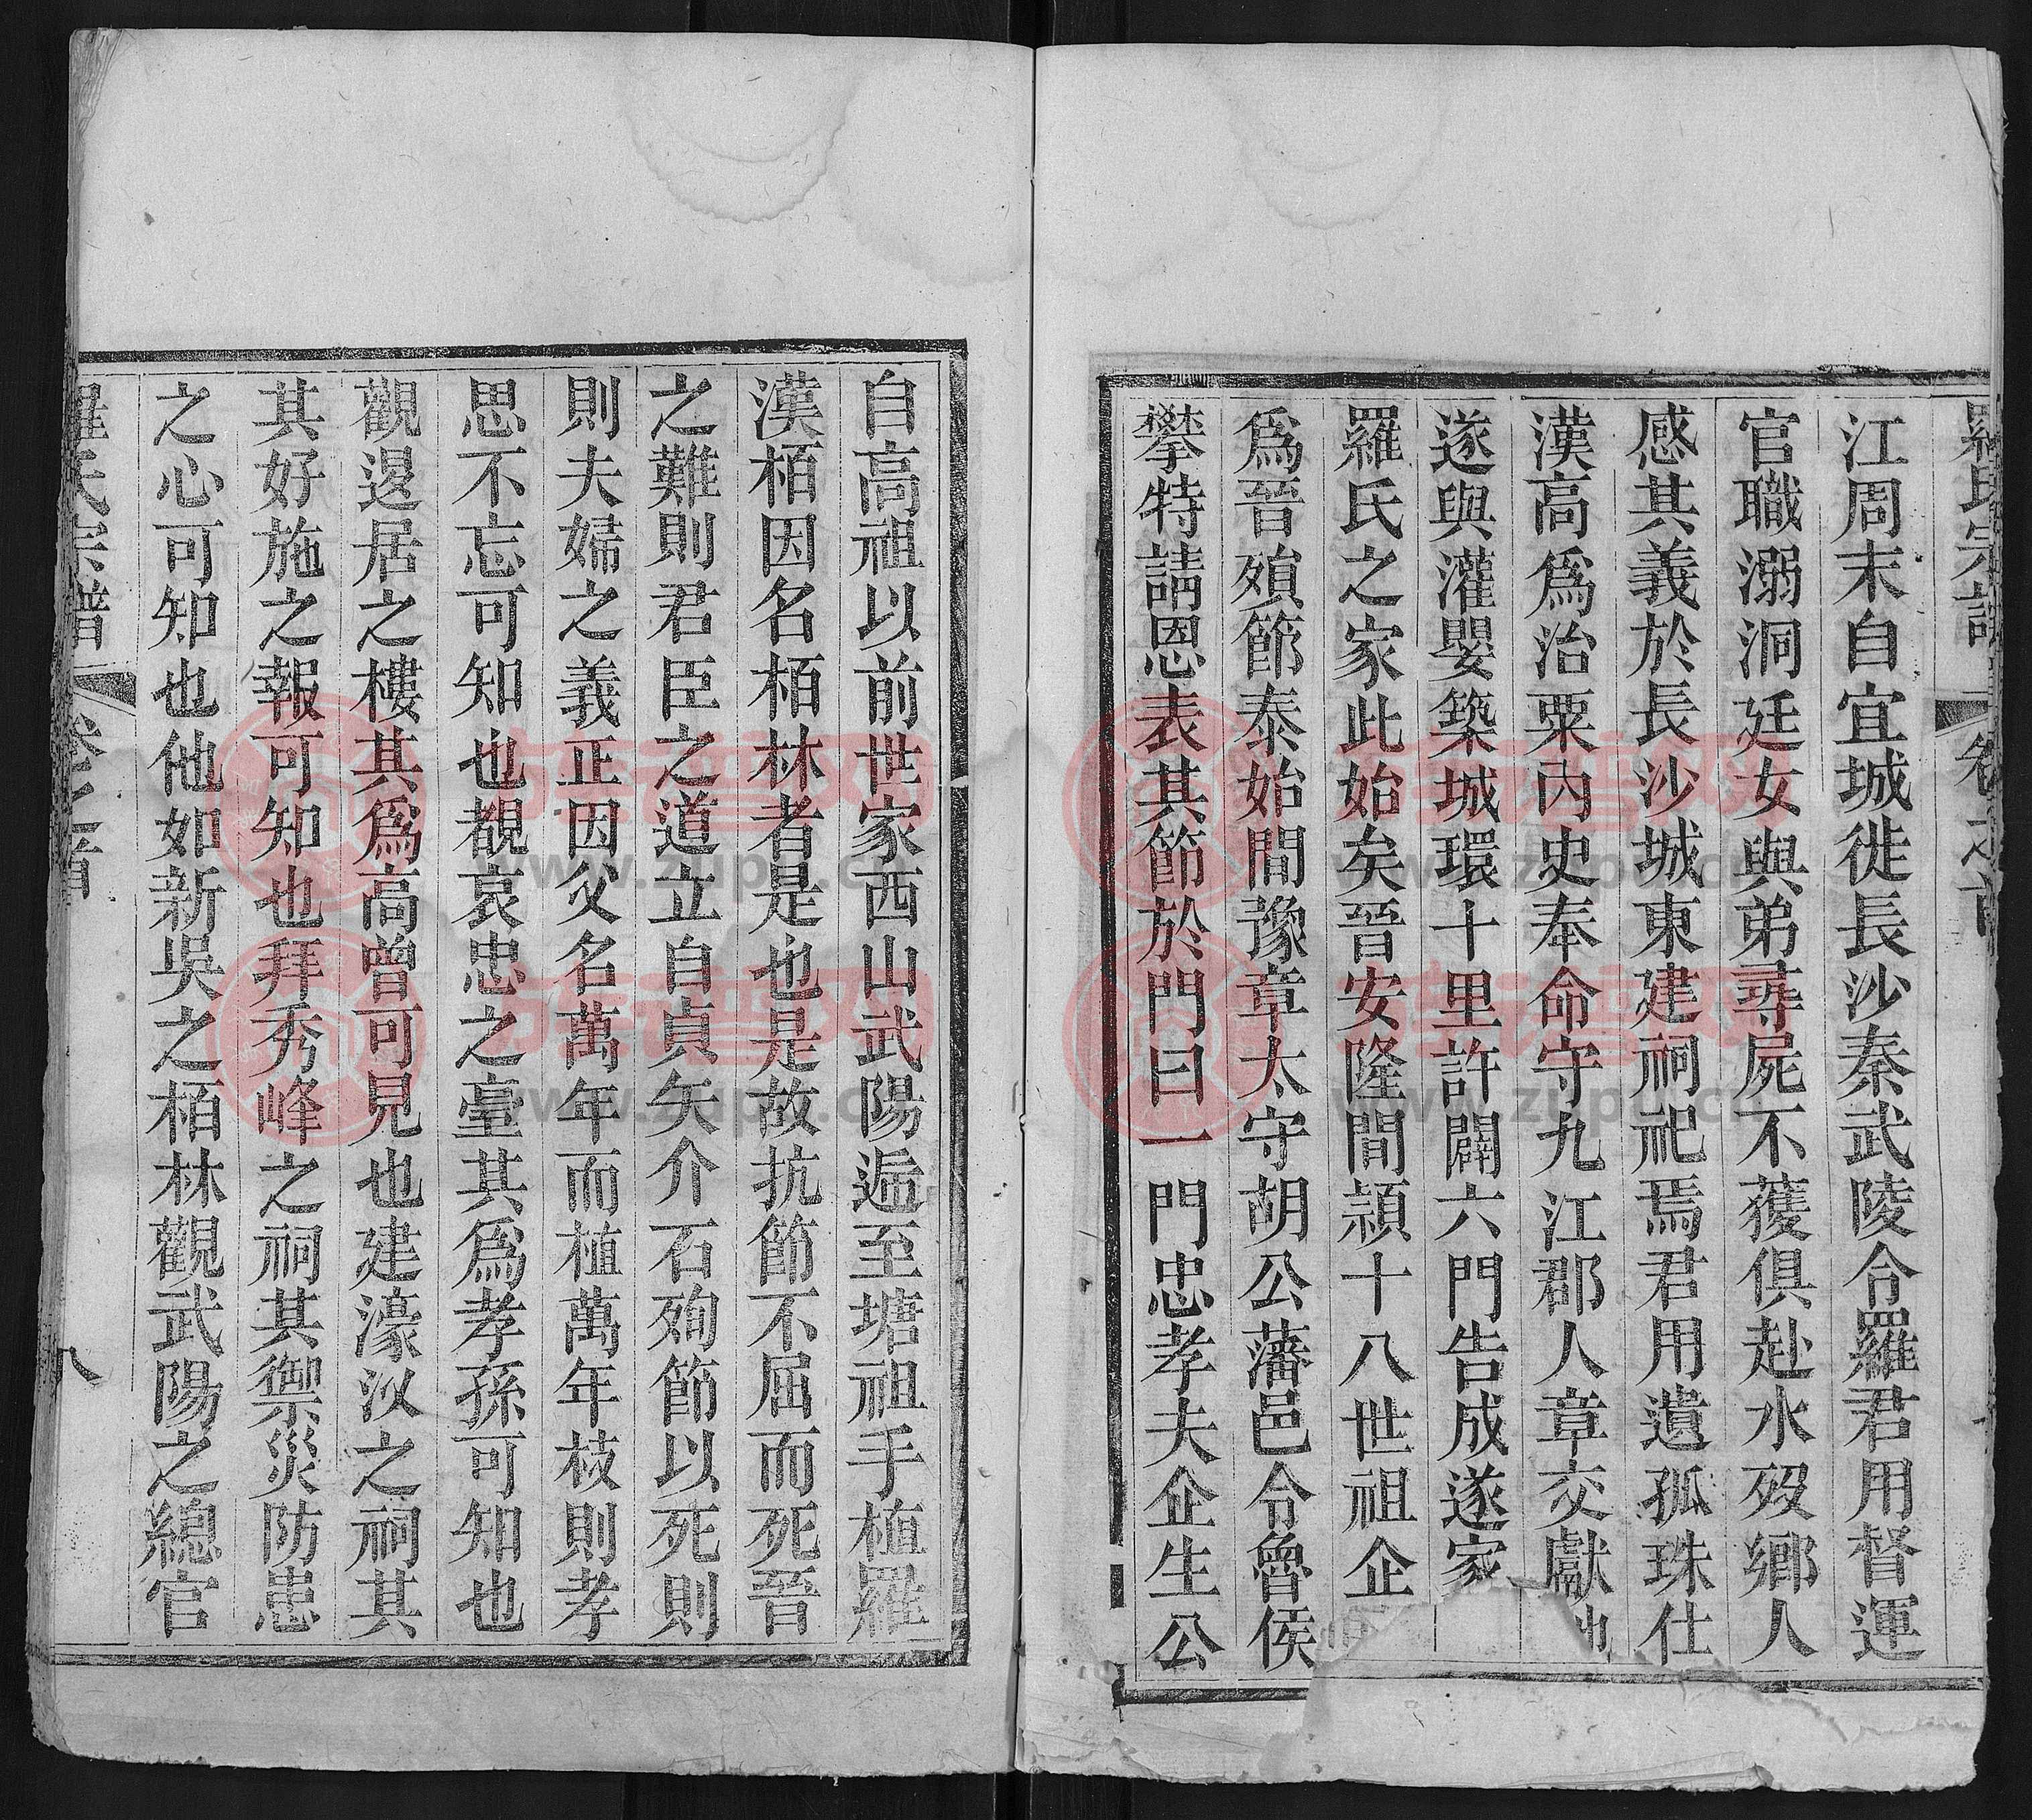 羅氏宗譜 卷之首
江周末自宜城徙長沙秦武陵令羅君用督運
官職溺洞廷女與弟尋屍不獲俱赴水歿鄉人
感其義於長沙城東建祠祀焉君用遺孤珠仕
漢高為治粟內史奉命守九江郡人章交獻地
遂與灌嬰築城環十里許闢六門告成遂家
羅氏之家此始矣晉安隆間頴十八世祖企
為晉殞節泰始間豫章太守胡公藩邑令魯侯
攀特請恩表其節於門曰一門忠孝夫企生公
自高祖以前世家西山武陽逓至塘祖手植羅
漢栢因名栢林者是也是故抗節不屈而死晉
之難則君臣之道立自貞矢介石殉節以死則
則夫婦之義正因父名萬年而植萬年枝則孝
思不忘可知也覩哀忠之臺其為孝孫可知也
觀逻居之樓其為高曾可見也建濠汊之祠其
其好施之報可知也拜秀峰之祠其禦災防患
之心可知也他如新吳之栢林觀武陽之總官
羅氏宗譜 卷之首 八
族谱网
www.zupu.cn
族谱网
www.zupu.cn
族谱网
www.zupu.cn
族谱网
www.zupu.cn